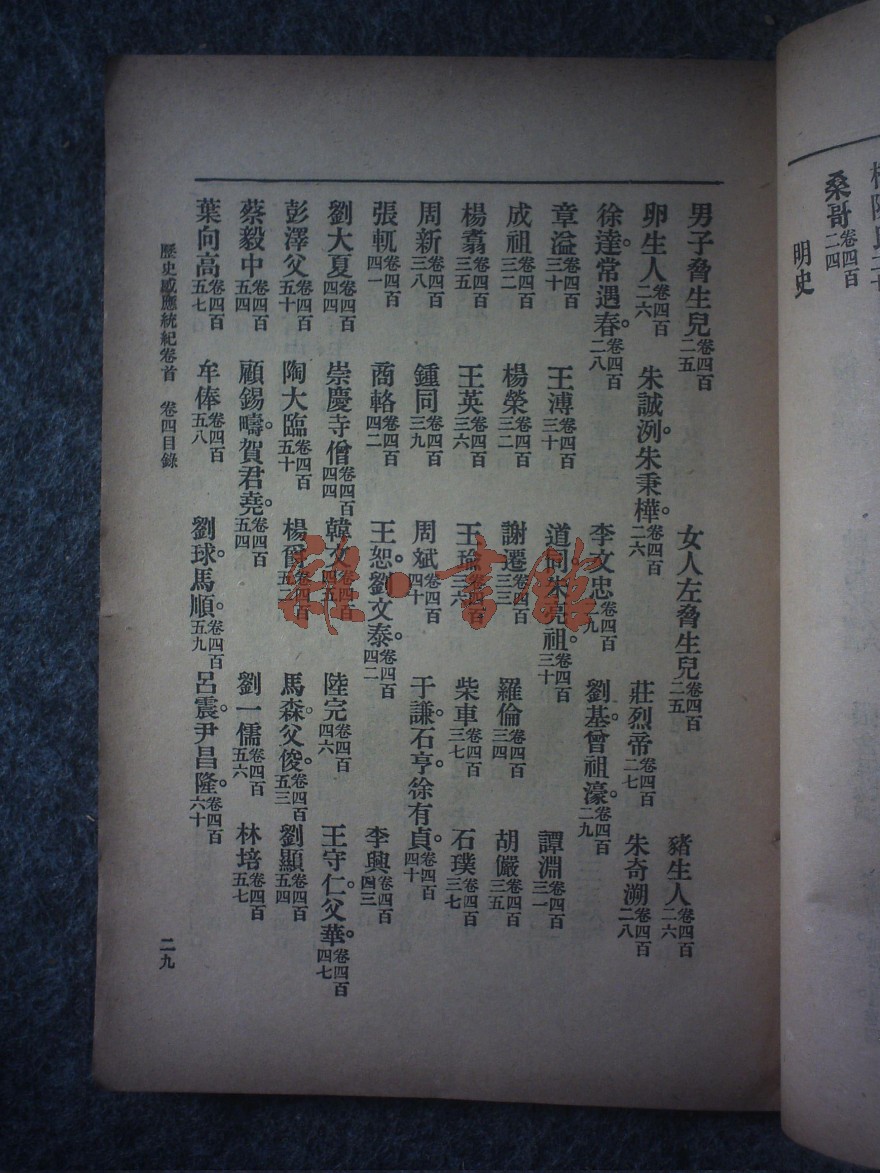 桑哥卷四百二四
明史
男子脅生兒卷四百二五　女人左脅生兒卷四百二五　豬生人卷四百二六
卵生人卷四百二六　朱誠洌。朱秉樺。卷四百二六　莊烈帝卷四百二七　朱奇溯卷四百二八
徐達。常遇春。卷四百二八　李文忠卷四百二九　劉基。曾祖濠。卷四百二九
章溢卷四百三十　王溥卷四百三十　道同。朱亮祖。卷四百三十　譚淵卷四百三一
成祖卷四百三二　楊榮卷四百三二　謝遷卷四百三三　羅倫卷四百三四　胡儼卷四百三五
楊翥卷四百三五　王英卷四百三六　王瑜卷四百三六　柴車卷四百三七　石璞卷四百三七
周新卷四百三八　鍾同卷四百三九　周斌卷四百四十　于謙。石亨。徐有貞。卷四百四十
張軏卷四百四一　商輅卷四百四二　王恕。劉文泰。卷四百四二　李興卷四百四三
劉大夏卷四百四四　崇慶寺僧卷四百四四　韓文卷四百四五　陸完卷四百四六　王守仁。父華。卷四百四七
彭澤父卷四百五十　陶大臨卷四百五十　楊爵卷四百　馬森。父俊。卷四百五三　劉顯卷四百五四
蔡毅中卷四百五四　顧錫疇。賀君堯。卷四百五四　劉一儒卷四百五六　林培卷四百五七
葉向高卷四百五七　牟俸卷四百五八　劉球。馬順。卷四百五九　呂震。尹昌隆。卷四百六十
歷史感應統紀卷首　卷四目錄　二九
雜·書館